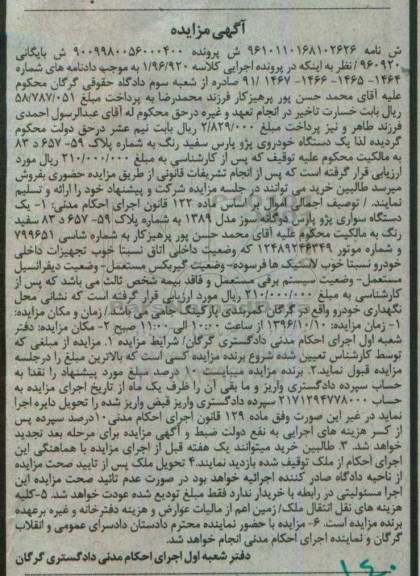 آگهی مزایده
ش نامه ۹۶۱۰۱۱۰۱۶۸۱۰۲۶۲۶ ش پرونده ۹۰۰۹۹۸۰۰۵۶۰۰۰۴۰۰ ش بایگانی
۹۶۰۹۲۰ / نظر به اینکه در پرونده اجرایی کلاسه ۱/۹۶/۹۲۰ به موجب دادنامه های شماره
۱۴۶۴- ۱۴۶۵- ۱۴۶۶- ۱۴۶۷ /۹۱ صادره از شعبه سوم دادگاه حقوقی گرگان محکوم
علیه آقای محمد حسن پور پرهیزکار فرزند محمدرضا به پرداخت مبلغ ۵۸/۷۸۷/۰۵۱
ریال بابت خسارت تاخیر در انجام تعهد و غیره درحق محکوم له آقای عبدالرسول احمدی
فرزند طاهر و نیز پرداخت مبلغ ۲/۸۲۹/۰۰۰ ریال بابت نیم عشر درحق دولت محکوم
گردیده لذا یک دستگاه خودروی پژو پارس سفید رنگ به شماره پلاک ۵۹- ۶۵۷ د ۸۳
به مالکیت محکوم علیه توقیف که پس از کارشناسی به مبلغ ۲۱۰/۰۰۰/۰۰۰ ریال مورد
ارزیابی قرار گرفته است که پس از انجام تشریفات قانونی از طریق مزایده حضوری بفروش
میرسد طالبین خرید می توانند در جلسه مزایده شرکت و پیشنهاد خود را ارائه و تسلیم
نمایند. / توصیف اجمالی اموال بر اساس ماده ۱۲۲ قانون اجرای احکام مدنی: ۱- یک
دستگاه سواری پژو پارس دوگانه سوز مدل ۱۳۸۹ به شماره پلاک ۵۹- ۶۵۷ د ۸۳ سفید
رنگ به مالکیت محکوم علیه آقای محمد حسن پور پرهیزکار به شماره شاسی ۷۹۹۶۵۱
و شماره موتور ۱۲۴۸۹۲۴۶۳۴۹ که وضعیت داخلی اتاق نسبتا خوب تجهیزات داخلی
خودرو نسبتا خوب لاستیک ها فرسوده- وضعیت گیربکس مستعمل- وضعیت دیفرانسیل
مستعمل- وضعیت سیستم برقی مستعمل و فاقد بیمه شخص ثالث می باشد که پس از
کارشناسی به مبلغ ۲۱۰/۰۰۰/۰۰۰ ریال مورد ارزیابی قرار گرفته است که نشانی محل
نگهداری خودرو واقع در گرگان کمربندی پارکینگ جامی می باشد/ زمان و مکان مزایده:
۱- زمان مزایده: ۱۳۹۶/۱۰/۱۰ از ساعت ۱۰:۰۰ الی ۱۱:۰۰ صبح ۲- مکان مزایده: دفتر
شعبه اول اجرای احکام مدنی دادگستری گرگان/ شرایط مزایده ۱. مزایده از مبلغی که
توسط کارشناس تعیین شده شروع برنده مزایده کسی است که بالاترین مبلغ را درجلسه
مزایده قبول نماید. ۲. برنده مزایده میبایست ۱۰ درصد مبلغ مورد پیشنهاد را نقدا به
حساب سپرده دادگستری واریز و ما بقی آن را ظرف یک ماه از تاریخ اجرای مزایده به
حساب ۲۱۷۱۲۹۴۷۷۸۰۰۰ سپرده دادگستری واریز قبض واریز شده را تحویل دایره اجرا
نماید در غیر این صورت وفق ماده ۱۲۹ قانون اجرای احکام مدنی ۱۰درصد سپرده پس
از کسر هزینه های اجرایی به نفع دولت ضبط و آگهی مزایده برای مرحله بعد تجدید
خواهد شد. ۳. طالبین خرید میتوانند یک هفته قبل از اجرای مزایده با هماهنگی این
اجرای احکام از ملک توقیف شده بازدید نمایند. ۴ تحویل ملک پس از تایید صحت مزایده
از ناحیه دادگاه صادر کننده اجرائیه خواهد بود در صورت عدم تائید صحت مزایده این
اجرا مسئولیتی در رابطه با خریدار ندارد فقط مبلغ تودیع شده عودت خواهد شد. ۵-کلیه
هزینه های نقل انتقال ملک/ زمین اعم از مالیات عوارض و هزینه دفترخانه و غیره برعهده
برنده مزایده است. ۶- مزایده با حضور نماینده محترم دادستان دادسرای عمومی و انقلاب
گرگان و نماینده اجرای احکام مدنی انجام خواهد شد.
دفتر شعبه اول اجرای احکام مدنی دادگستری گرگان